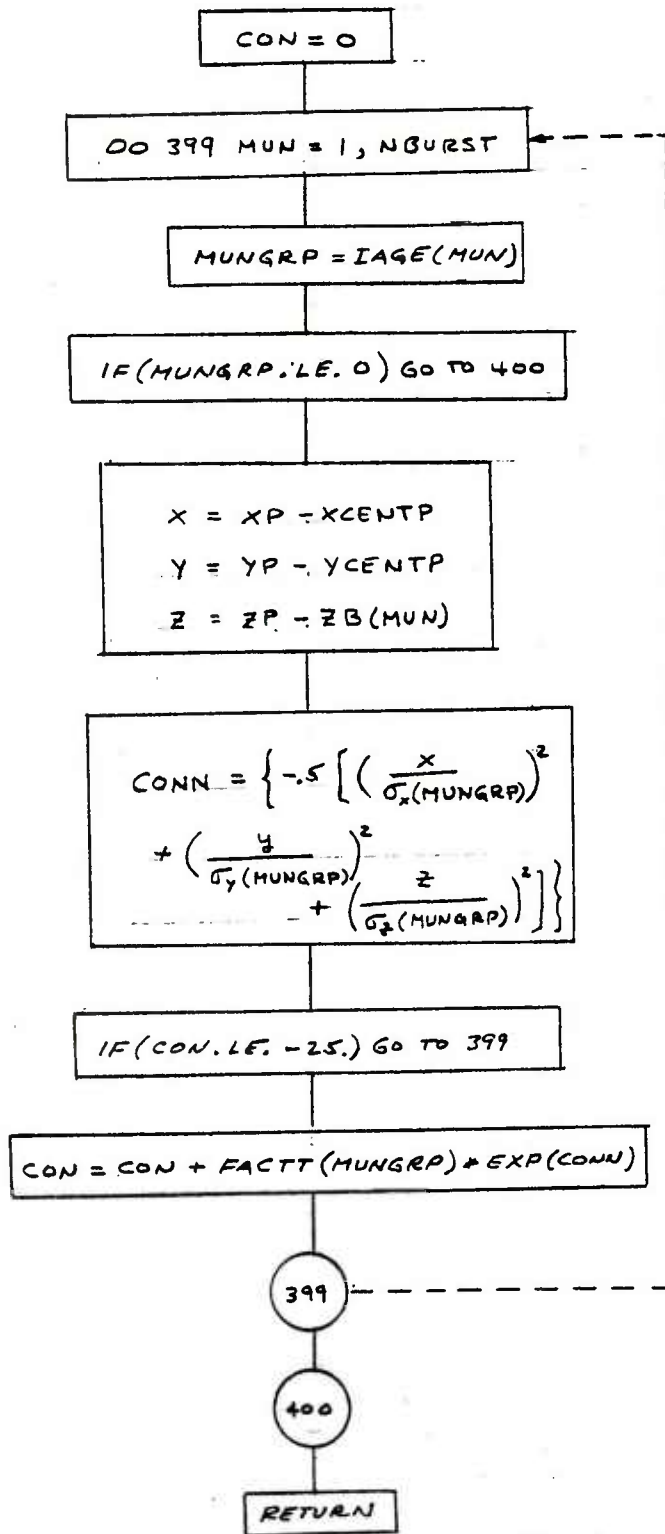 CON = 0
DO 399 MUN = 1, NBURST
MUNGRP = IAGE(MUN)
IF(MUNGRP.LE. 0) GO TO 400
X = XP - XCENTP
Y = YP - YCENTP
Z = ZP - ZB(MUN)
CONN = { -.5 [ ( x / σx(MUNGRP) )²
+ ( y / σy(MUNGRP) )²
+ ( z / σz(MUNGRP) )² ] }
IF(CON.LE. -25.) GO TO 399
CON = CON + FACTT(MUNGRP) * EXP(CONN)
399
400
RETURN